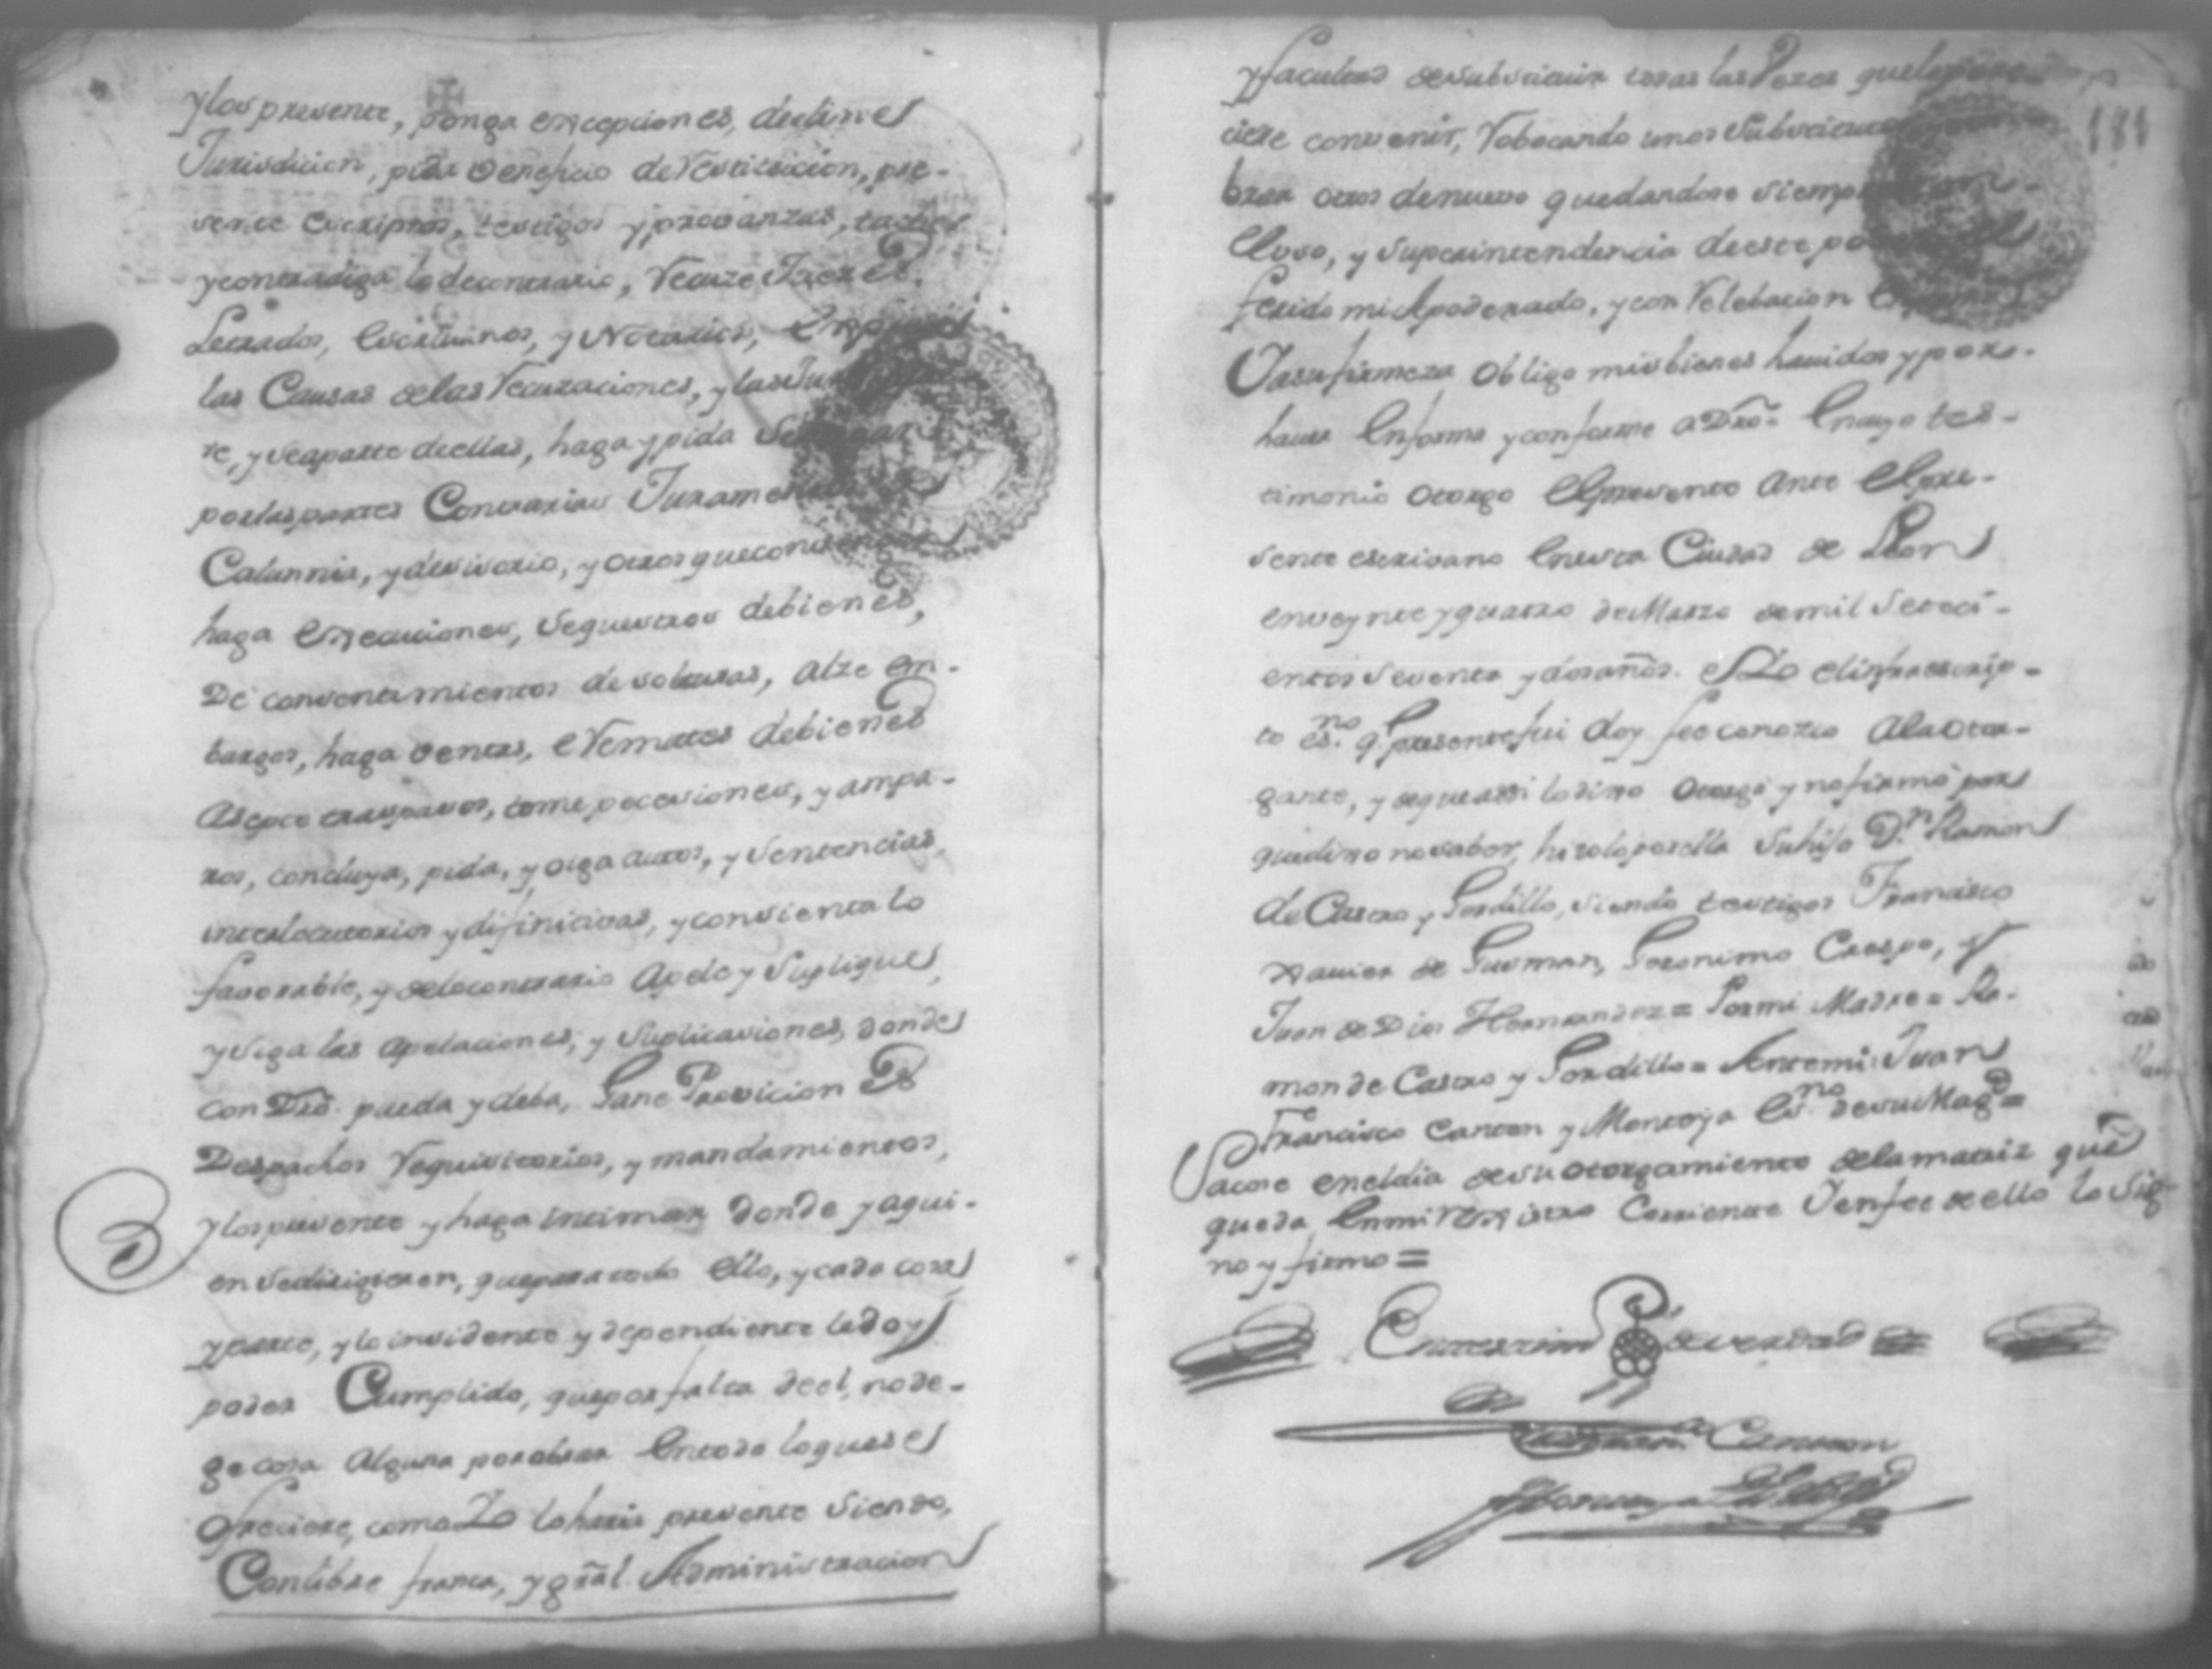 y los presente, ponga excepciones, decline
Jurisdicion, pida veneficio de restitucion, pre-
sente escriptos, testigos y provanzas, tache
y contradiga lo de contrario, recuze Juezes,
Letrados, Escrivanos, y Notarios,
las Causas de las recuzaciones, y las Ju
re, y se aparte de ellas, haga y pida
por las partes Contrarias Juramen
Calumnia, y desisorio, y otros que conv
haga execuciones, sequestros de bienes,
De consentimientos de solturas, alze em-
bargos, haga ventas, e remates de bienes
asepte traspasos, tome poceciones, y ampa-
ros, concluya, pida, y oiga autos, y sentencias,
interlocutorios y difinitivas, y consienta lo
favorable, y de lo contrario apele y suplique,
y siga las apelaciones, y suplicaciones, donde
con Dro. pueda y deba, Gane Provicion Rs
Despachos requisitorios, y mandamientos,
y los presente y haga intimar donde y aqui-
en se dirigieren, que para todo ello, y cada cosa
y parte, y lo insidente y dependiente le doy
poder Cumplido, que por falta de el, no de-
ge cosa alguna por obrar en todo lo que se
ofreciere, como Yo lo haria presente siendo,
Con libre franca, y gral. Administracion
y facultad de substituir todas las Vezes que le
ciere convenir, robocando unos Substitu
brar otros de nuevo quedandose siemp
el uso, y superintendencia de este po
ferido mi Apoderado, y con relebacion
Y a su firmeza obligo mis bienes havidos y por
haver en forma y conforme a Dro. en cuyo tes-
timonio otorgo el presente ante el pre-
sente escrivano en esta Ciudad de Leon
en veynte y quatro de Marzo de mil seteci-
entos setenta y dos años. Yo el infraescrip-
to esno. q. presente fui doy fee conozco a la otor-
gante, y de que assi lo dixo otorgó y no firmó por
que dixo no saber, hizolo por ella su hijo Dn. Ramon
de Castro y Gordillo, siendo testigos Francisco
Xavier de Gusman, Geronimo Crespo, y
Juan de Dios Hernandez = Por mi Madre = Ra-
mon de Castro y Gordillo = Ante mi: Juan
Francisco Canton y Montoya Esno. de su Magd. =
Sacose en el dia de su otorgamiento de la matriz que
queda en mi registro Corriente Y en fee de ello lo sig-
no y firmo =
En testimo de verdad
Canton
181